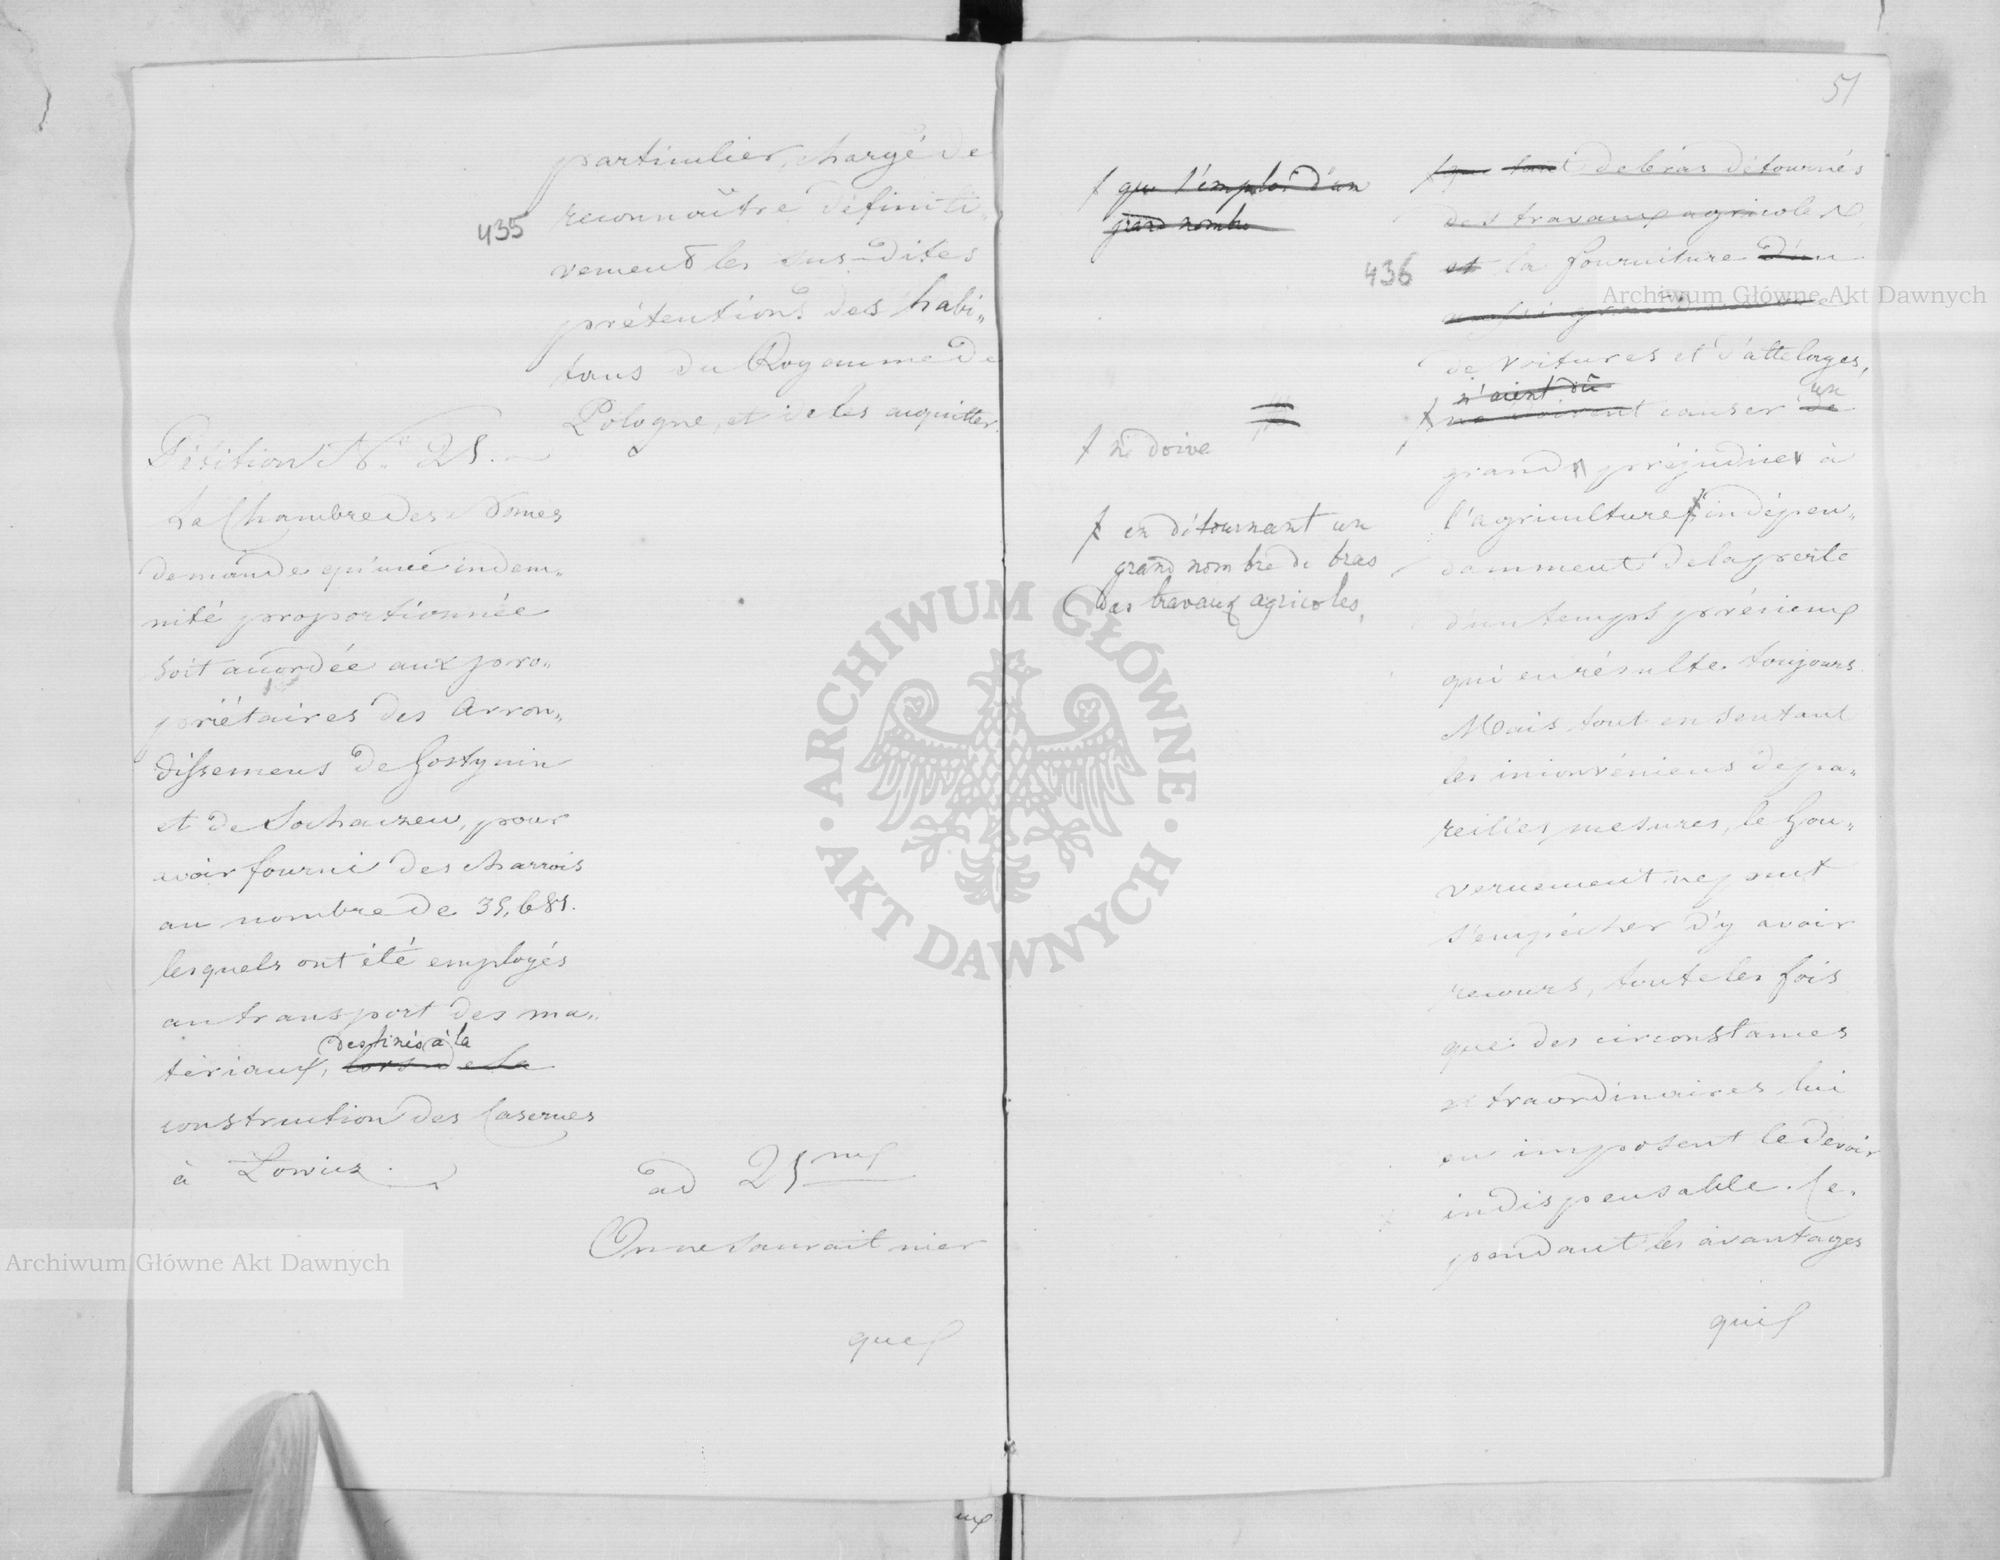 particulier, chargé de
reconnaître définiti-
435
vement les sus-dites
prétentions des habi-
tans du Royaume de
Pologne, et de les acquitter.
Pétition No. 25.
La Chambre des Nonces
demande qu'une indem-
nité proportionnée
soit accordée aux pro-
priétaires des Arron-
dissemens de Gostynin
et de Sochaczew, pour
avoir fourni des charrois
au nombre de 35,685.
lesquels ont été employés
au transport des ma-
destinés à la
tériaux, lors de la
construction des Casernes
à Lowicz.
ad 25
On ne saurait nier
que
51
que l'emploi d'un
grand nombre
436
ne doive
en détournant un
grand nombre de bras
des travaux agricoles,
que tant de bras détournés
des travaux agricoles
et la fourniture d'un
aussi grand nombre
de voitures et d'attelages,
n'aient dû un
ne doivent causer de
grands préjudices à
l'agriculture, indépen-
damment de la perte
d'un temps précieux
qui en résulte toujours.
Mais tout en sentant
les inconvéniens de pa-
reilles mesures, le Gou-
vernement ne peut
s'empêcher d'y avoir
recours, toutes les fois
que des circonstances
extraordinaires lui
en imposent le devoir
indispensable. Ce-
pendant les avantages
qui
Archiwum Główne Akt Dawnych
Archiwum Główne Akt Dawnych
ARCHIWUM GŁÓWNE AKT DAWNYCH